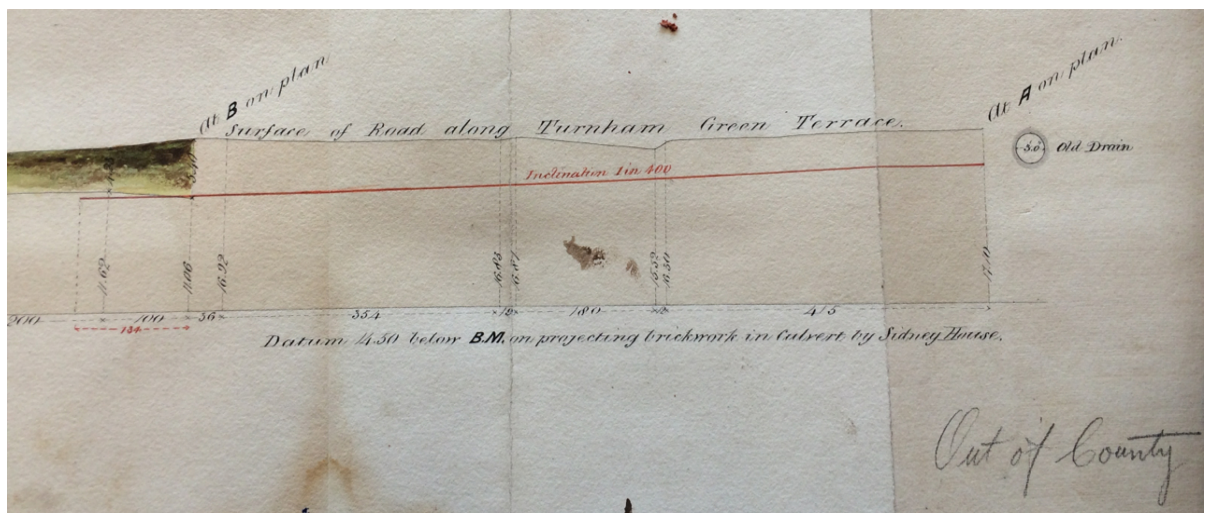 At B on plan
At A on plan.
Surface of Road along Turnham Green Terrace.
5.0
Old Drain
Inclination 1 in 400
11.62
11.06
16.92
16.83
16.87
15.52
16.50
17.10
200
100
36
354
180
415
134
Datum 4.50 below B.M. on projecting brickwork in Culvert by Sidney House.
Out of County